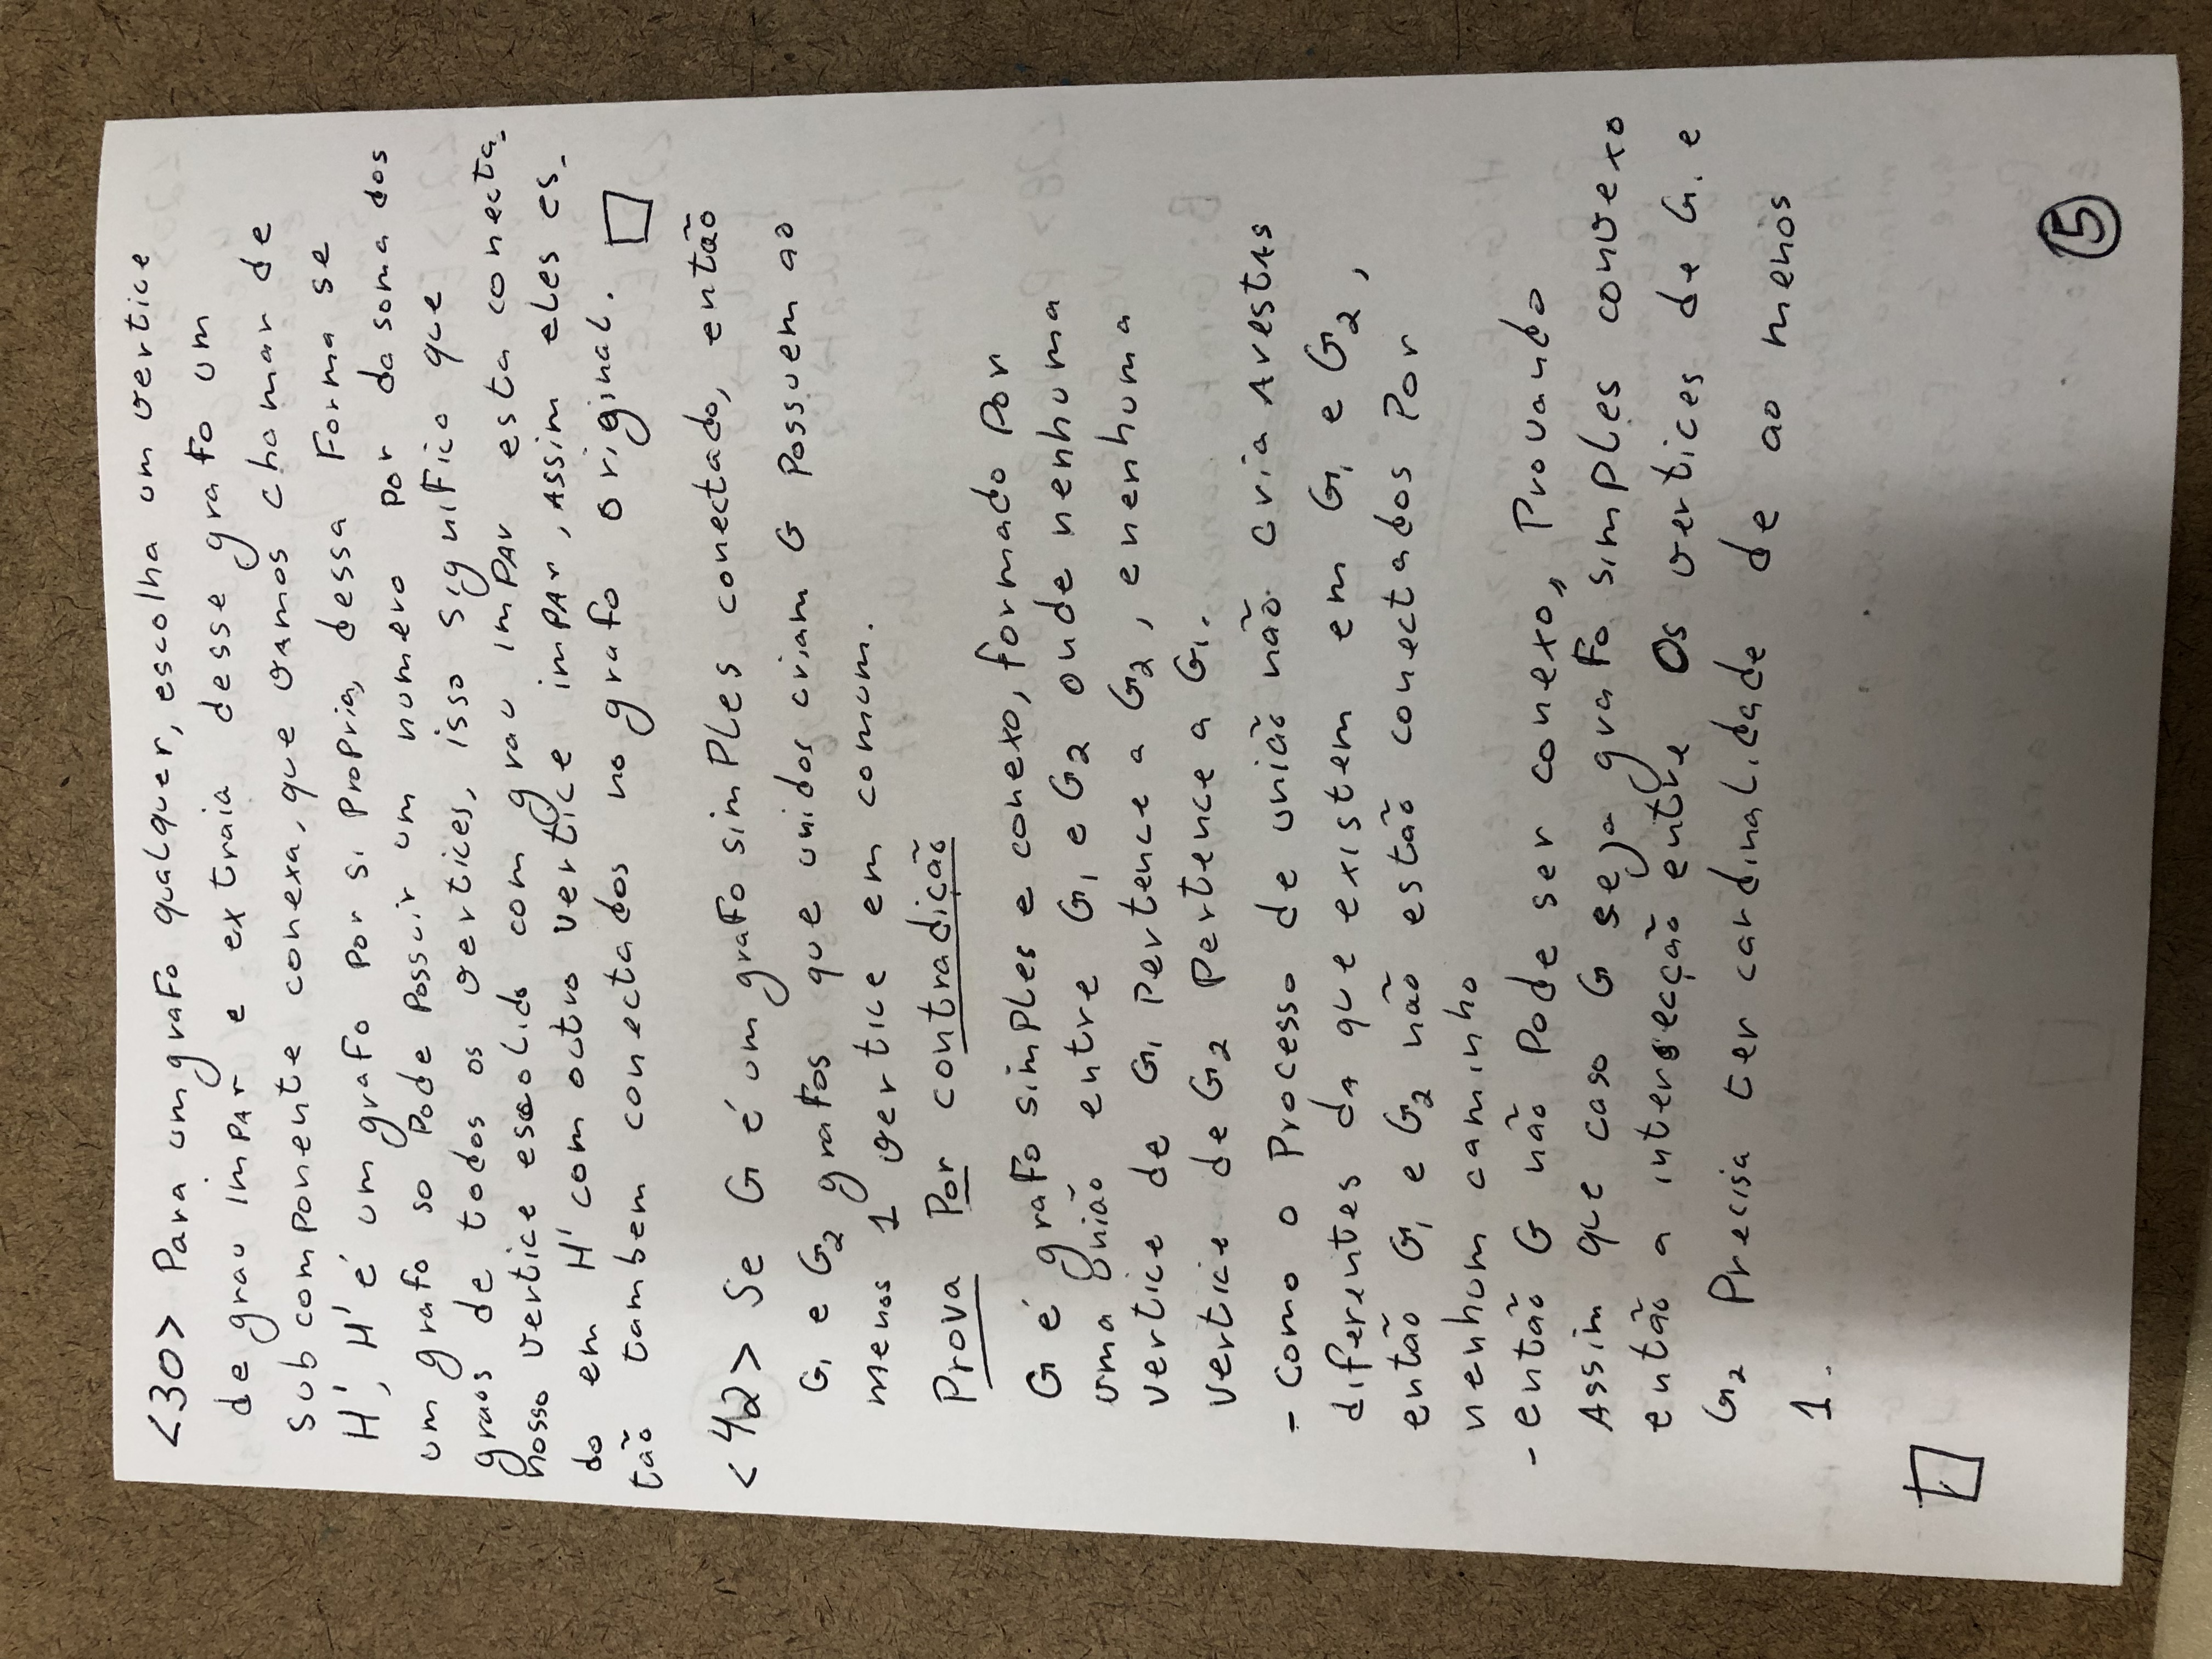 <30> Para um grafo qualquer, escolha um vertice
de grau impar e extraia desse grafo um
sub componente conexa, que vamos chamar de
H', H' é um grafo por si propria, dessa forma se
um grafo so pode possuir um numero par da soma dos
graos de todos os vertices, isso significa que
nosso vertice escolido com grau impar esta conecta-
do em H' com outro vertice impar, assim eles es-
tão tambem conectados no grafo original. □
<42> Se G é um grafo simples conectado, então
G₁ e G₂ grafos que unidos criam G possuem ao
menos 1 vertice em comum.
Prova Por contradição
G é grafo simples e conexo, formado por
uma união entre G₁ e G₂ onde nenhuma
vertice de G₁ pertence a G₂, e nenhuma
vertice de G₂ pertence a G₁.
- Como o processo de união não cria arestas
diferentes da que existem em G₁ e G₂,
então G₁ e G₂ não estão conectados por
nenhum caminho
- então G não pode ser conexo, provando
assim que caso G seja grafo simples convexo
então a intersecção entre os vertices de G₁ e
G₂ precisa ter cardinalidade de ao menos
1.
□
5